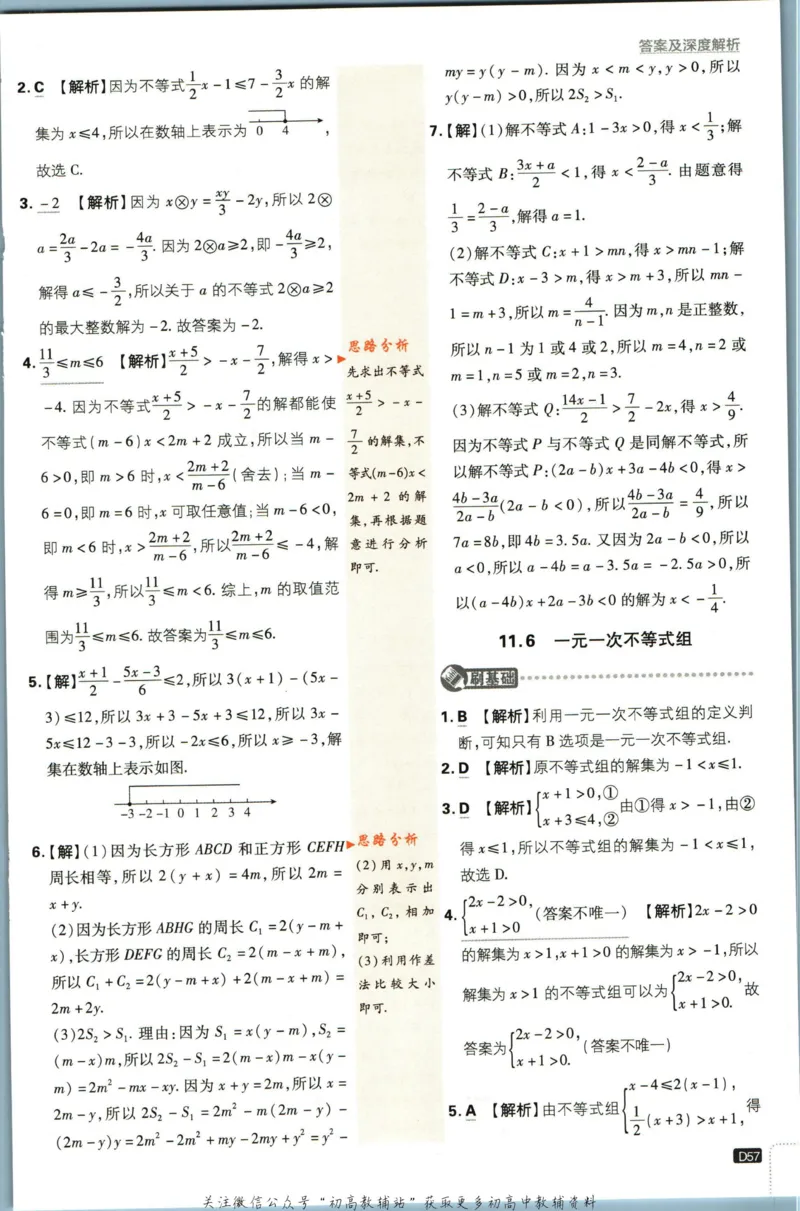 答案及深度解析
2.C 【解析】因为不等式1/2x-1≤7-3/2x的解
集为x≤4,所以在数轴上表示为 0 4 ,
故选C.
3. -2 【解析】因为x⊗y=xy/3-2y,所以2⊗
a=2a/3-2a=-4a/3.因为2⊗a≥2,即-4a/3≥2,
解得a≤-3/2,所以关于a的不等式2⊗a≥2
的最大整数解为-2.故答案为-2.
4. 11/3≤m≤6 【解析】x+5/2>-x-7/2,解得x>
-4.因为不等式x+5/2>-x-7/2的解都能使
不等式(m-6)x<2m+2成立,所以当m-
6>0,即m>6时,x<2m+2/m-6(舍去);当m-
6=0,即m=6时,x可取任意值;当m-6<0,
即m<6时,x>2m+2/m-6,所以2m+2/m-6≤-4,解
得m≥11/3,所以11/3≤m<6.综上,m的取值范
围为11/3≤m≤6.故答案为11/3≤m≤6.
5.【解】x+1/2-5x-3/6≤2,所以3(x+1)-(5x-
3)≤12,所以3x+3-5x+3≤12,所以3x-
5x≤12-3-3,所以-2x≤6,所以x≥-3,解
集在数轴上表示如图.
-3 -2 -1 0 1 2 3 4
6.【解】(1)因为长方形ABCD和正方形CEFH
周长相等,所以2(y+x)=4m,所以2m=
x+y.
(2)因为长方形ABHG的周长C₁=2(y-m+
x),长方形DEFG的周长C₂=2(m-x+m),
所以C₁+C₂=2(y-m+x)+2(m-x+m)=
2m+2y.
(3)2S₂>S₁.理由:因为S₁=x(y-m),S₂=
(m-x)m,所以2S₂-S₁=2(m-x)m-x(y-
m)=2m²-mx-xy.因为x+y=2m,所以x=
2m-y,所以2S₂-S₁=2m²-m(2m-y)-
(2m-y)y=2m²-2m²+my-2my+y²=y²-
思路分析
先求出不等式
x+5/2>-x-
7/2的解集,不
等式(m-6)x<
2m+2的解
集,再根据题
意进行分析
即可.
思路分析
(2)用x,y,m
分别表示出
C₁,C₂,相加
即可;
(3)利用作差
法比较大小
即可.
my=y(y-m).因为x<m<y,y>0,所以
y(y-m)>0,所以2S₂>S₁.
7.【解】(1)解不等式A:1-3x>0,得x<1/3;解
不等式B:3x+a/2<1,得x<2-a/3.由题意得
1/3=2-a/3,解得a=1.
(2)解不等式C:x+1>mn,得x>mn-1;解
不等式D:x-3>m,得x>m+3,所以mn-
1=m+3,所以m=4/n-1.因为m,n是正整数,
所以n-1为1或4或2,所以m=4,n=2或
m=1,n=5或m=2,n=3.
(3)解不等式Q:14x-1/2>7/2-2x,得x>4/9.
因为不等式P与不等式Q是同解不等式,所
以解不等式P:(2a-b)x+3a-4b<0,得x>
4b-3a/2a-b(2a-b<0),所以4b-3a/2a-b=4/9,所以
7a=8b,即4b=3.5a.又因为2a-b<0,所以
a<0,所以a-4b=a-3.5a=-2.5a>0,所
以(a-4b)x+2a-3b<0的解为x<-1/4.
11.6 一元一次不等式组
刷基础
1.B 【解析】利用一元一次不等式组的定义判
断,可知只有B选项是一元一次不等式组.
2.D 【解析】原不等式组的解集为-1<x≤1.
3.D 【解析】{x+1>0,① x+3≤4,②由①得x>-1,由②
得x≤1,所以不等式组的解集为-1<x≤1,
故选D.
4. {2x-2>0, x+1>0(答案不唯一) 【解析】2x-2>0
的解集为x>1,x+1>0的解集为x>-1,所以
解集为x>1的不等式组可以为{2x-2>0, x+1>0.故
答案为{2x-2>0, x+1>0.(答案不唯一)
5.A 【解析】由不等式组{x-4≤2(x-1), 1/2(x+3)>x+1,得
D57
关注微信公众号“初高教辅站”获取更多初高中教辅资料